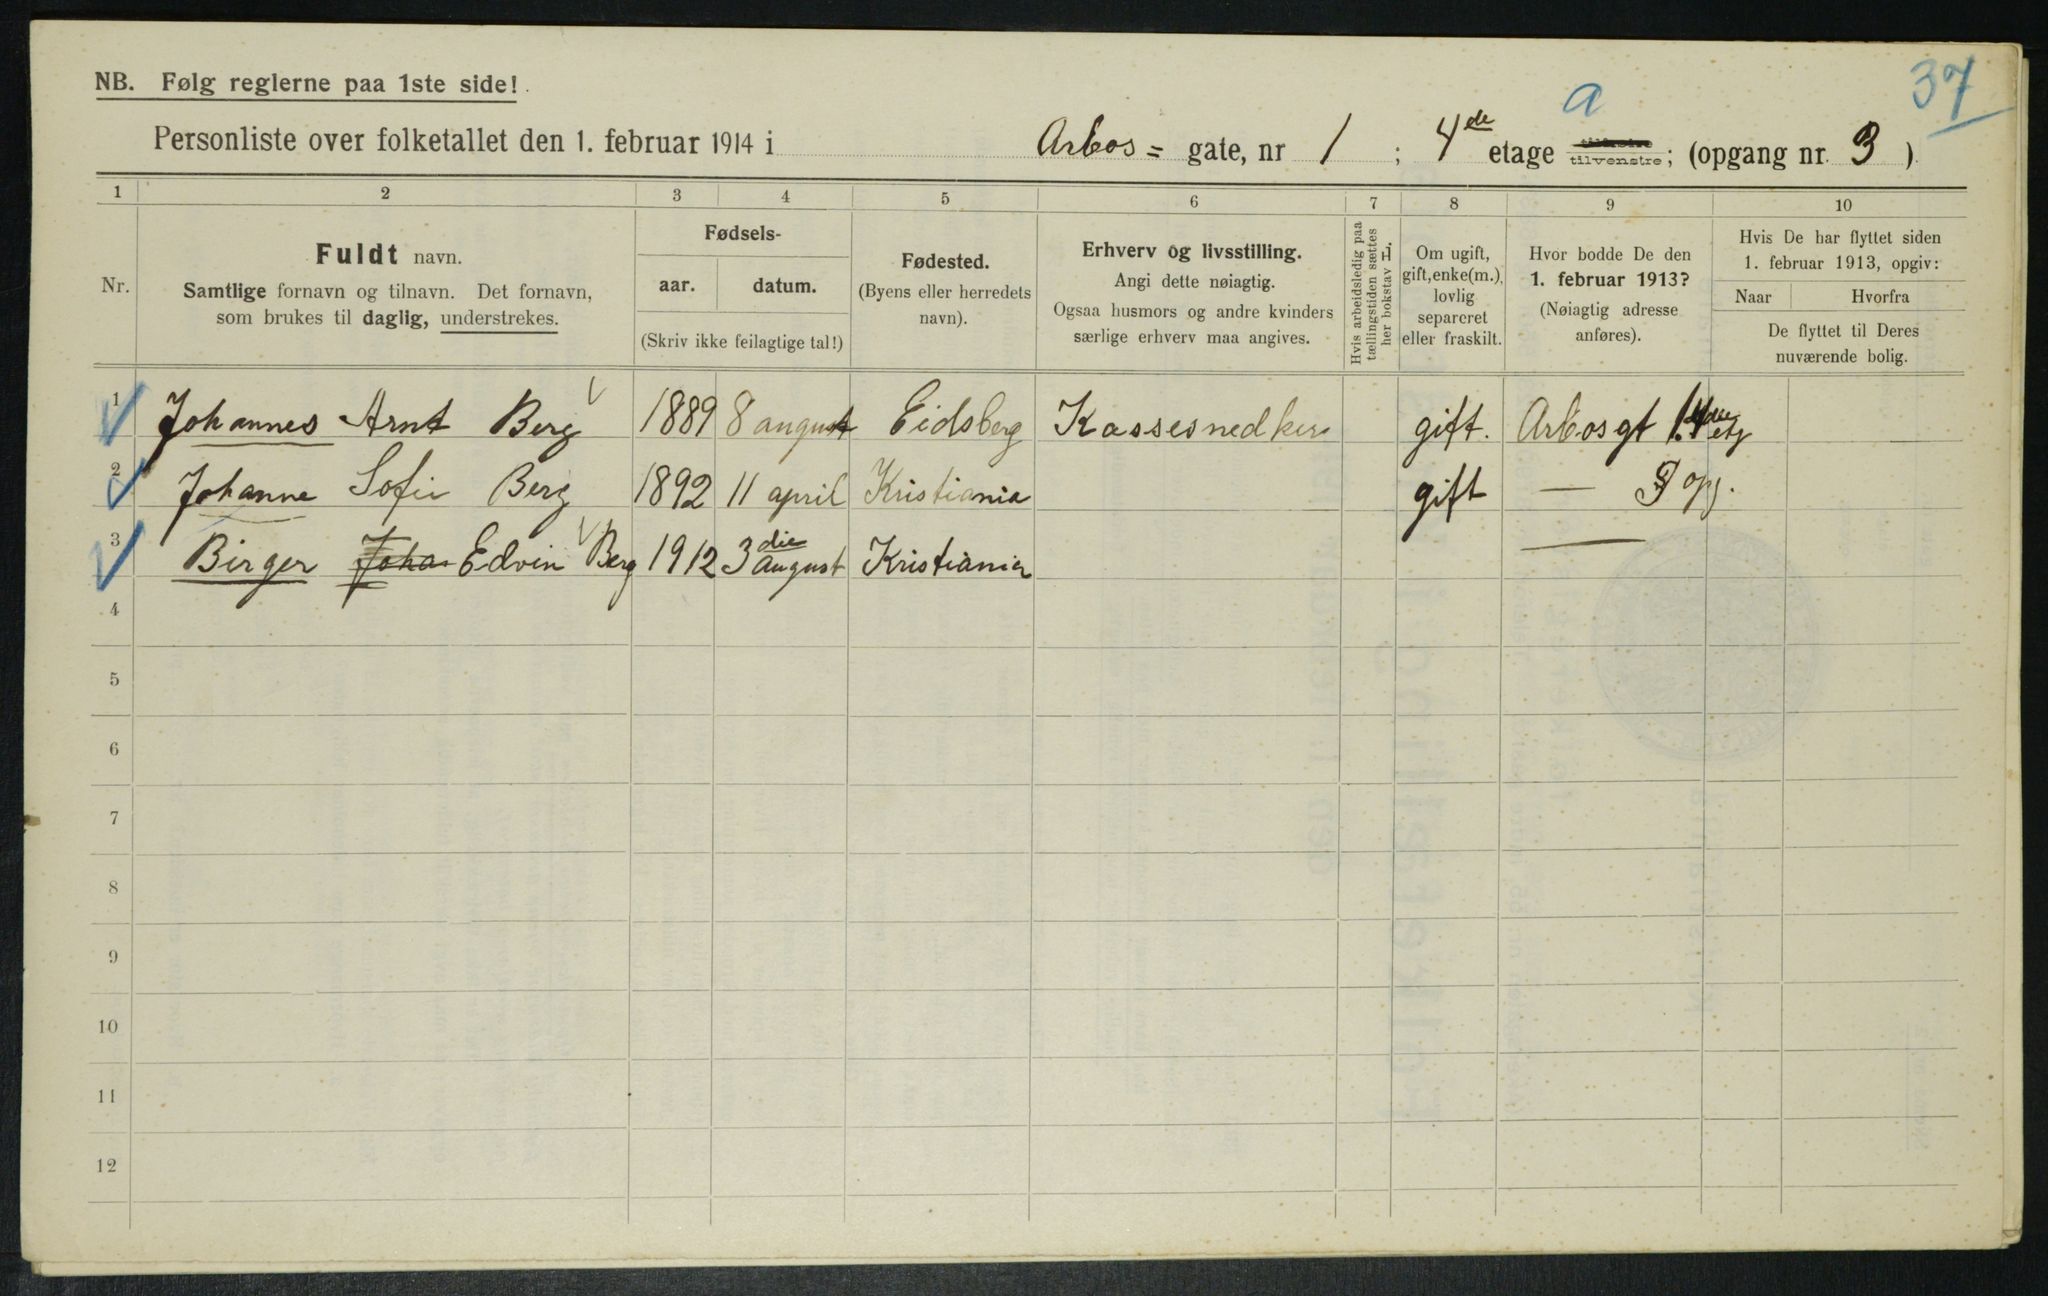 37
NB. Følg reglerne paa 1ste side!
a
Personliste over folketallet den 1. februar 1914 i Arbos= gate, nr 1 ; 4de etage tilhøire tilvenstre; (opgang nr. 3 )
1 2 3 4 5 6 7 8 9 10
Nr.
Fuldt navn.
Samtlige fornavn og tilnavn. Det fornavn,
som brukes til daglig, understrekes.
Fødsels-
aar. datum.
(Skriv ikke feilagtige tal!)
Fødested.
(Byens eller herredets
navn).
Erhverv og livsstilling.
Angi dette nøiagtig.
Ogsaa husmors og andre kvinders
særlige erhverv maa angives.
Hvis arbeidsledig paa
tællingstiden sættes
her bokstav L.
Om ugift,
gift, enke(m.),
lovlig
separeret
eller fraskilt.
Hvor bodde De den
1. februar 1913?
(Nøiagtig adresse
anføres).
Hvis De har flyttet siden
1. februar 1913, opgiv:
Naar Hvorfra
De flyttet til Deres
nuværende bolig.
1 Johannes Arnt Berg 1889 8 august Eidsberg Kassesnedker gift. Arbosgt 1. 4de etg
2 Johanne Sofie Berg 1892 11 april Kristiania gift — 3 opg.
3 Birger Joha Edvin Berg 1912 3die august Kristiania
4
5
6
7
8
9
10
11
12